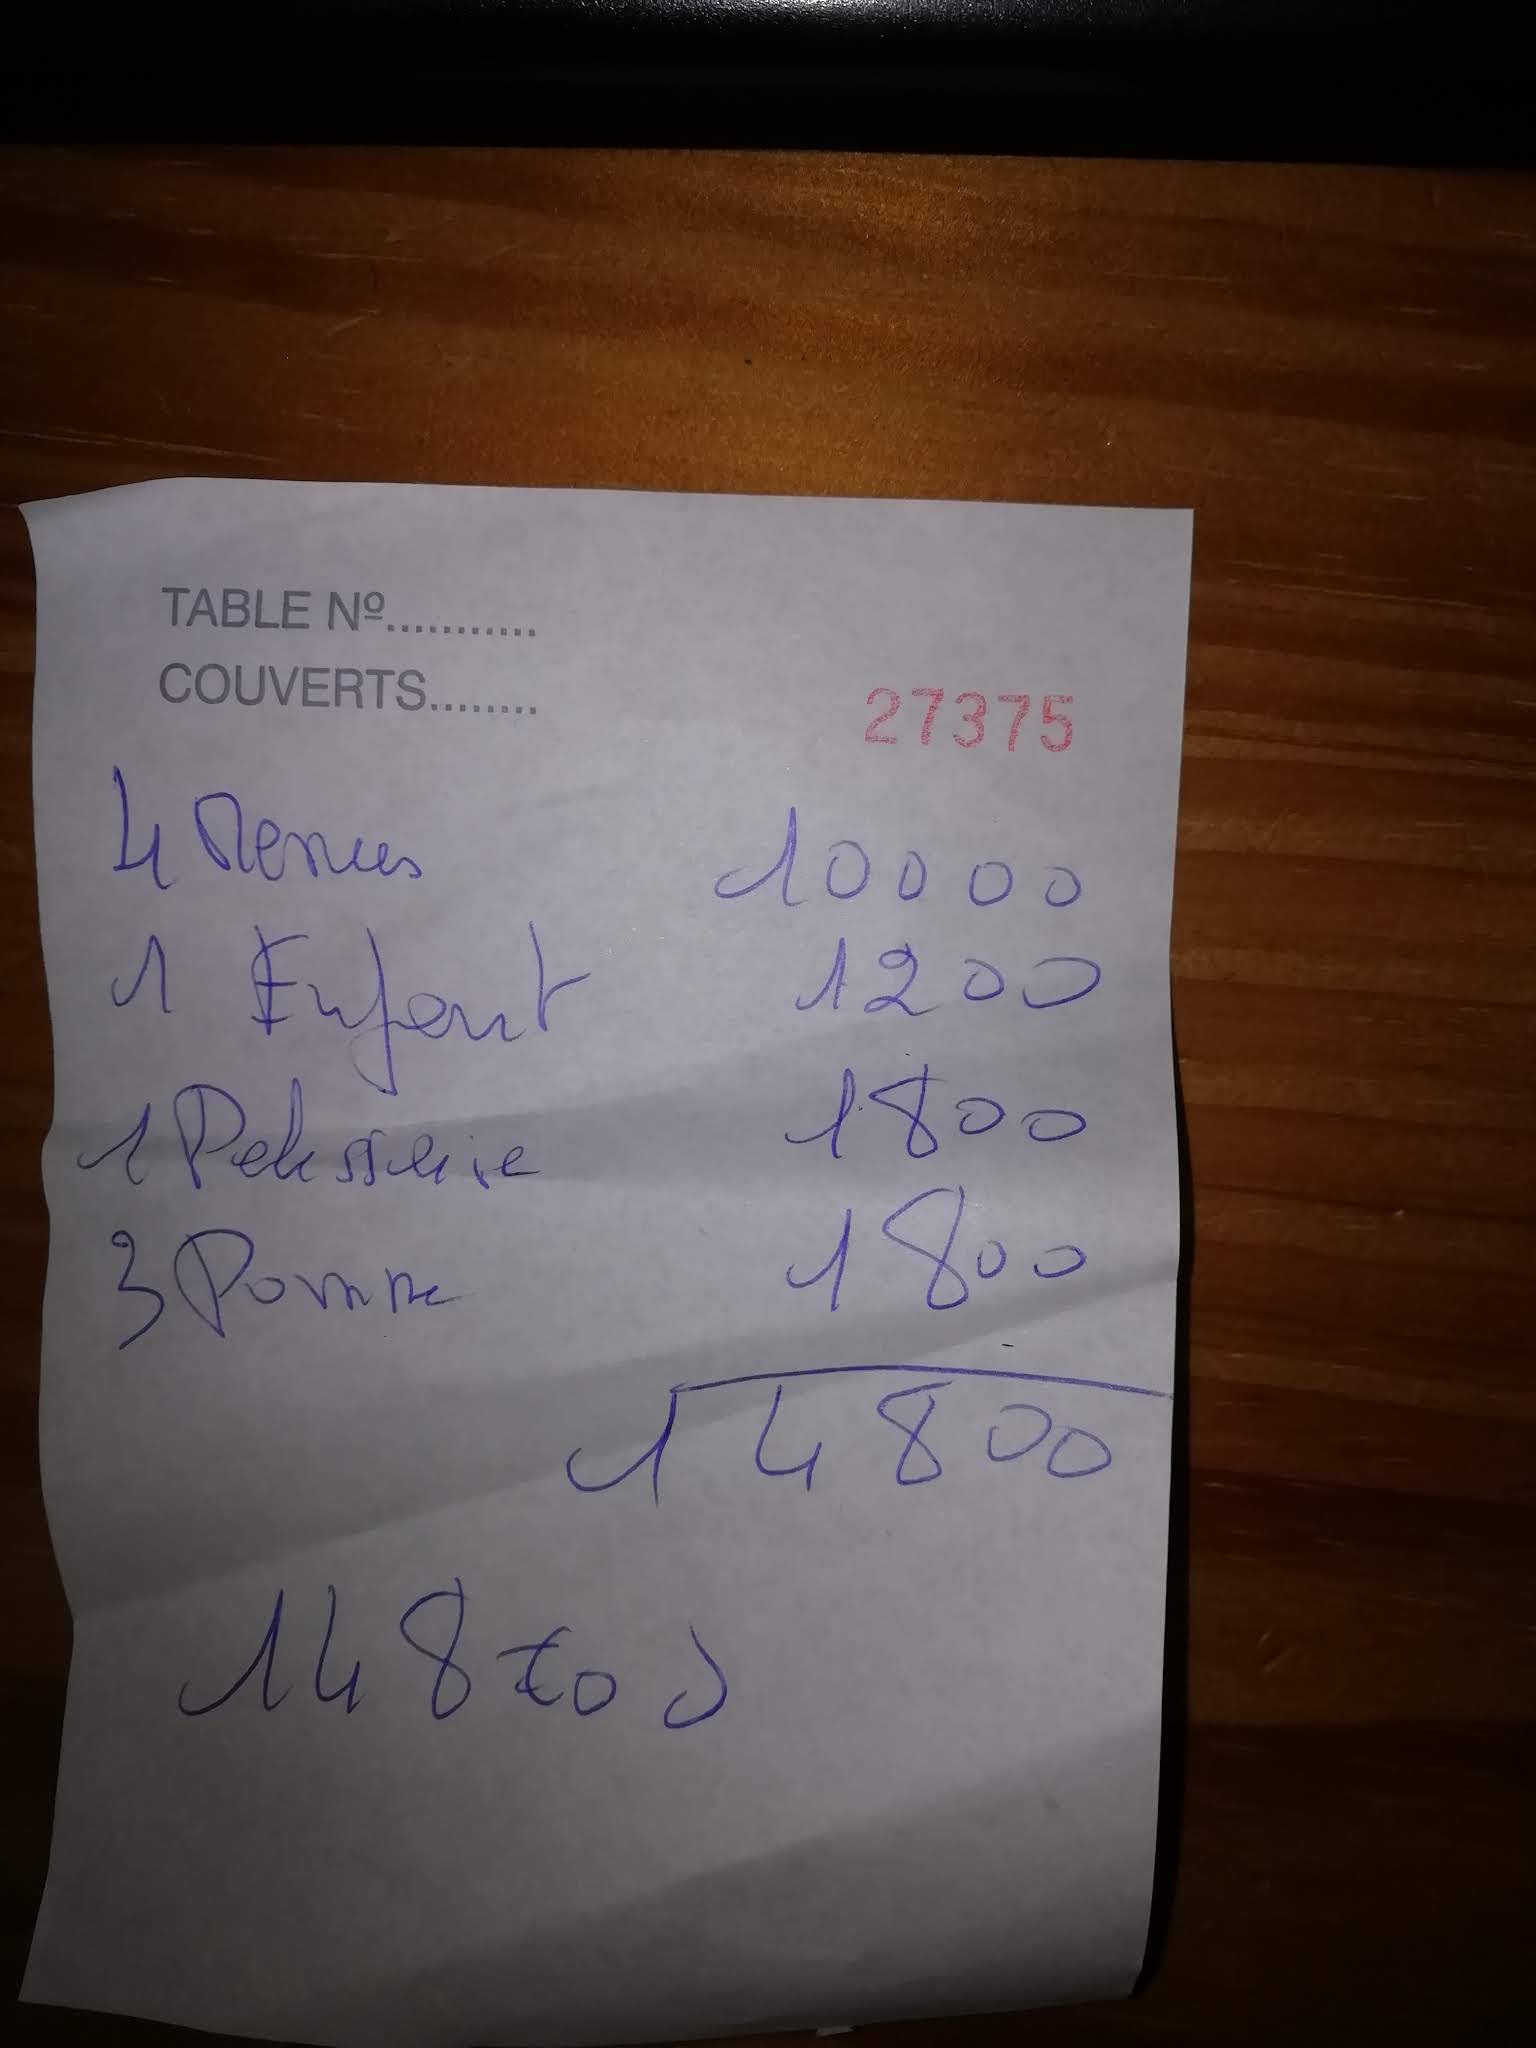 TABLE Nº...........
COUVERTS........
27375
4 Menus 10000
1 Enfant 1200
1 Pelisserie 1800
3 Pomme 1800
14800
148€00